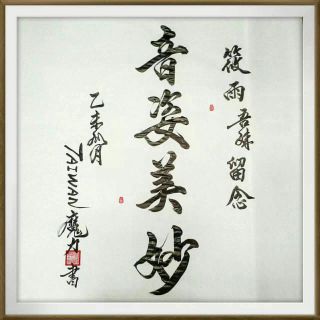 筱雨吾妹留念
音姿美妙
乙未春月
TAIWAN 魔力書